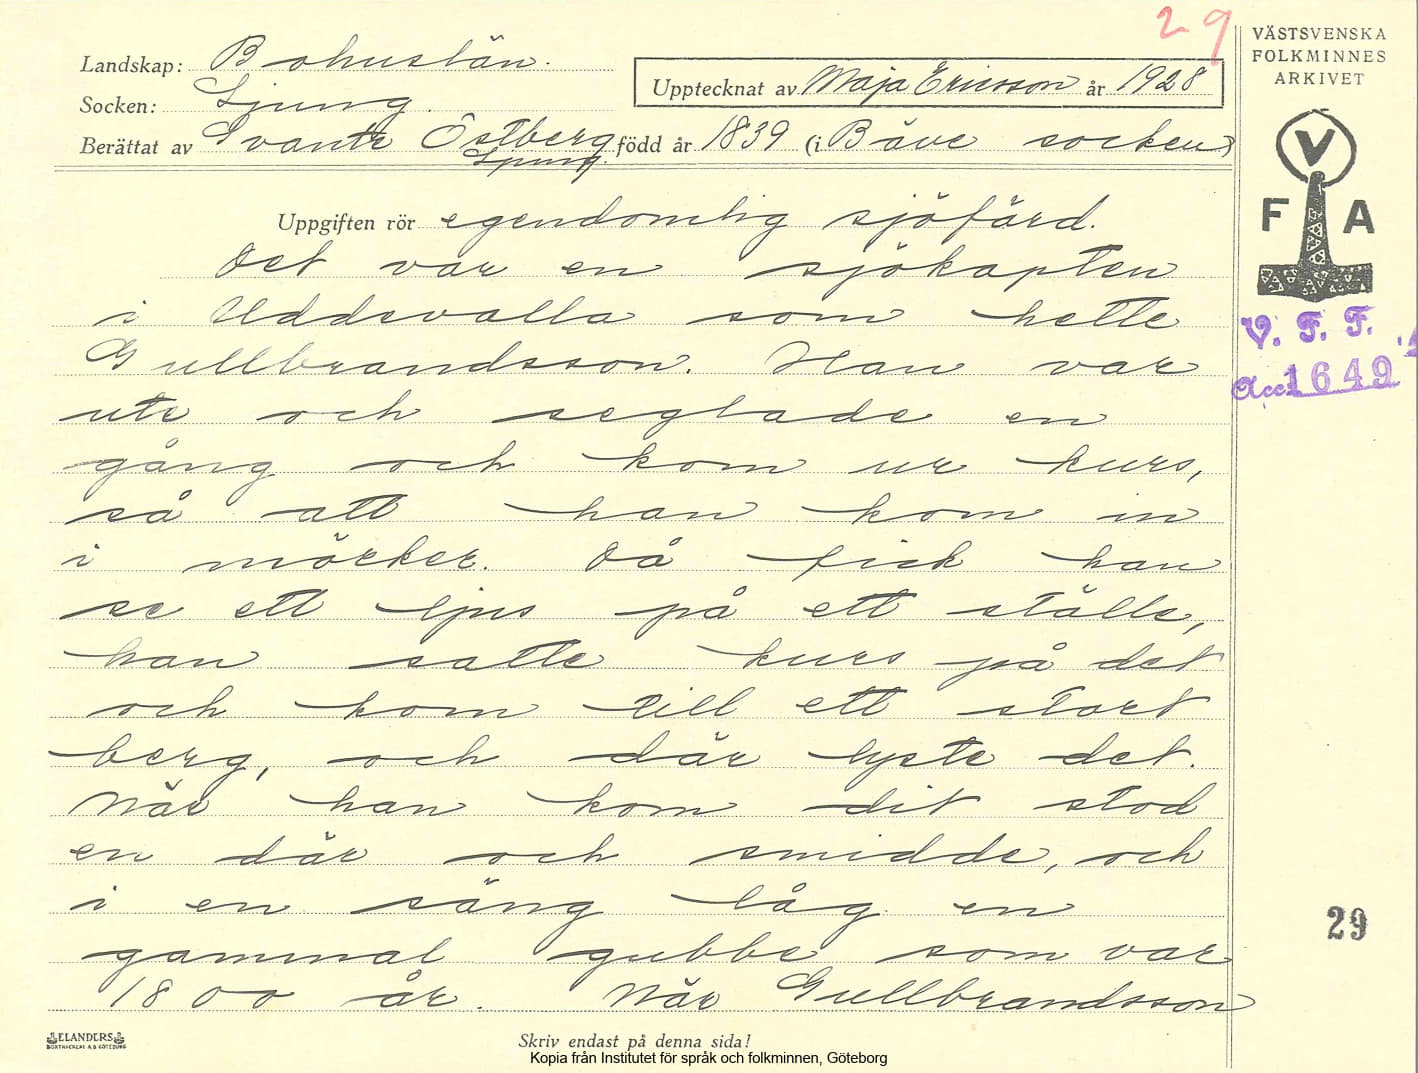 29
Landskap: Bohuslän.
Upptecknat av Maja Ericsson år 1928
Socken: Ljung.
Berättat av Svante Östberg född år 1839 (i Bäve socken)
Ljung.
Uppgiften rör egendomlig sjöfärd.
Det var en sjökapten
i Uddevalla som hette
Gullbrandsson. Han var
ute och seglade en
gång och kom ur kurs,
så att han kom in
i mörker. Då fick han
se ett ljus på ett ställe,
han satte kurs på det
och kom till ett stort
berg, och där lyste det.
När han kom dit stod
en där och smidde, och
i en säng låg en
gammal gubbe som var
1800 år. När Gullbrandsson
VÄSTSVENSKA
FOLKMINNES
ARKIVET
V
F A
V. F. F.
Acc. 1649
29
ELANDERS
BOKTRYCKERI A.B. GÖTEBORG
Skriv endast på denna sida!
Kopia från Institutet för språk och folkminnen, Göteborg